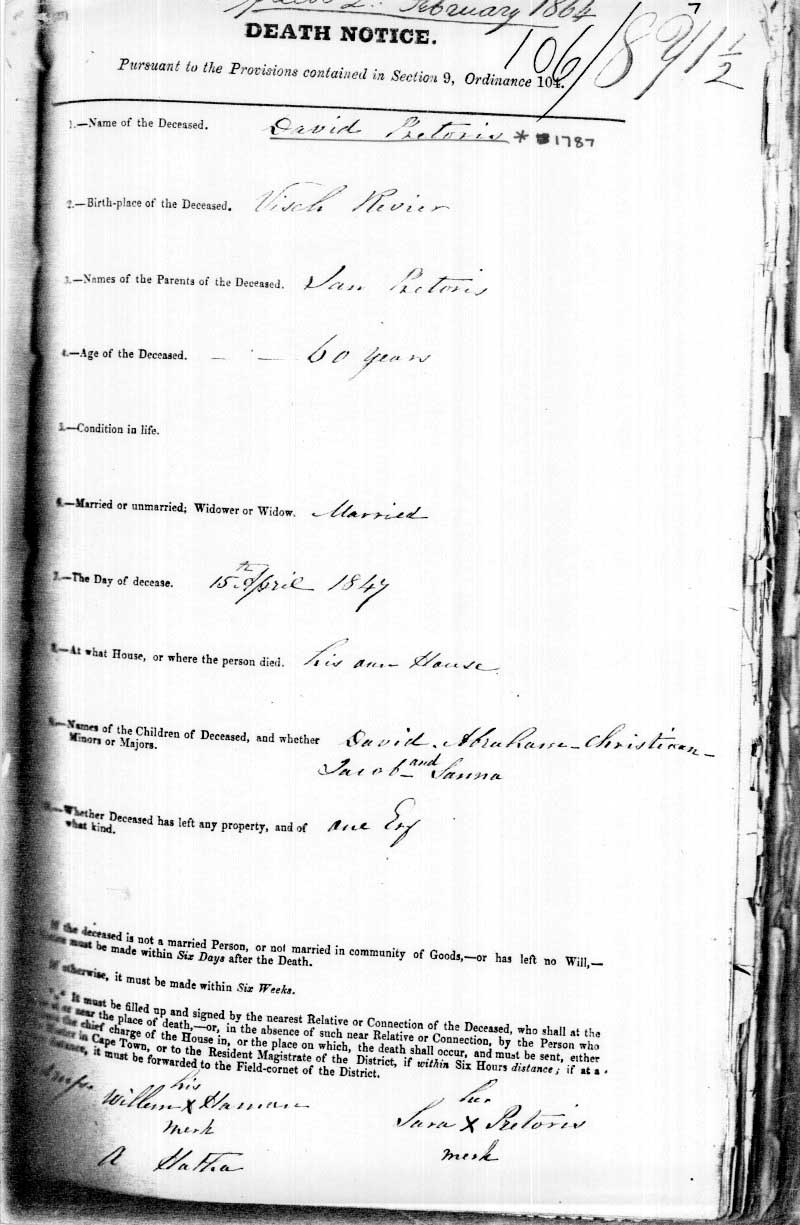 2 February 1864
DEATH NOTICE.
106/8 91½
Pursuant to the Provisions contained in Section 9, Ordinance 104.
1.—Name of the Deceased. David Pretoris * 1787
2.—Birth-place of the Deceased. Visch Revier
3.—Names of the Parents of the Deceased. Jan Pretoris
4.—Age of the Deceased. — — 60 years
5.—Condition in life.
6.—Married or unmarried; Widower or Widow. Married
7.—The Day of decease. 15th April 1847
8.—At what House, or where the person died. his own House
9.—Names of the Children of Deceased, and whether David - Abraham - Christiaan -
Minors or Majors. Jacob - and Sanna
10.—Whether Deceased has left any property, and of one Erf
what kind.
If the deceased is not a married Person, or not married in community of Goods,—or has left no Will,—
must be made within Six Days after the Death.
If otherwise, it must be made within Six Weeks.
It must be filled up and signed by the nearest Relative or Connection of the Deceased, who shall at the
near the place of death,—or, in the absence of such near Relative or Connection, by the Person who
the chief charge of the House in, or the place on which, the death shall occur, and must be sent, either
Master in Cape Town, or to the Resident Magistrate of the District, if within Six Hours distance; if at a
distance, it must be forwarded to the Field-cornet of the District.
his
Willem X Haman
merk
her
Sara X Pretoris
merk
A